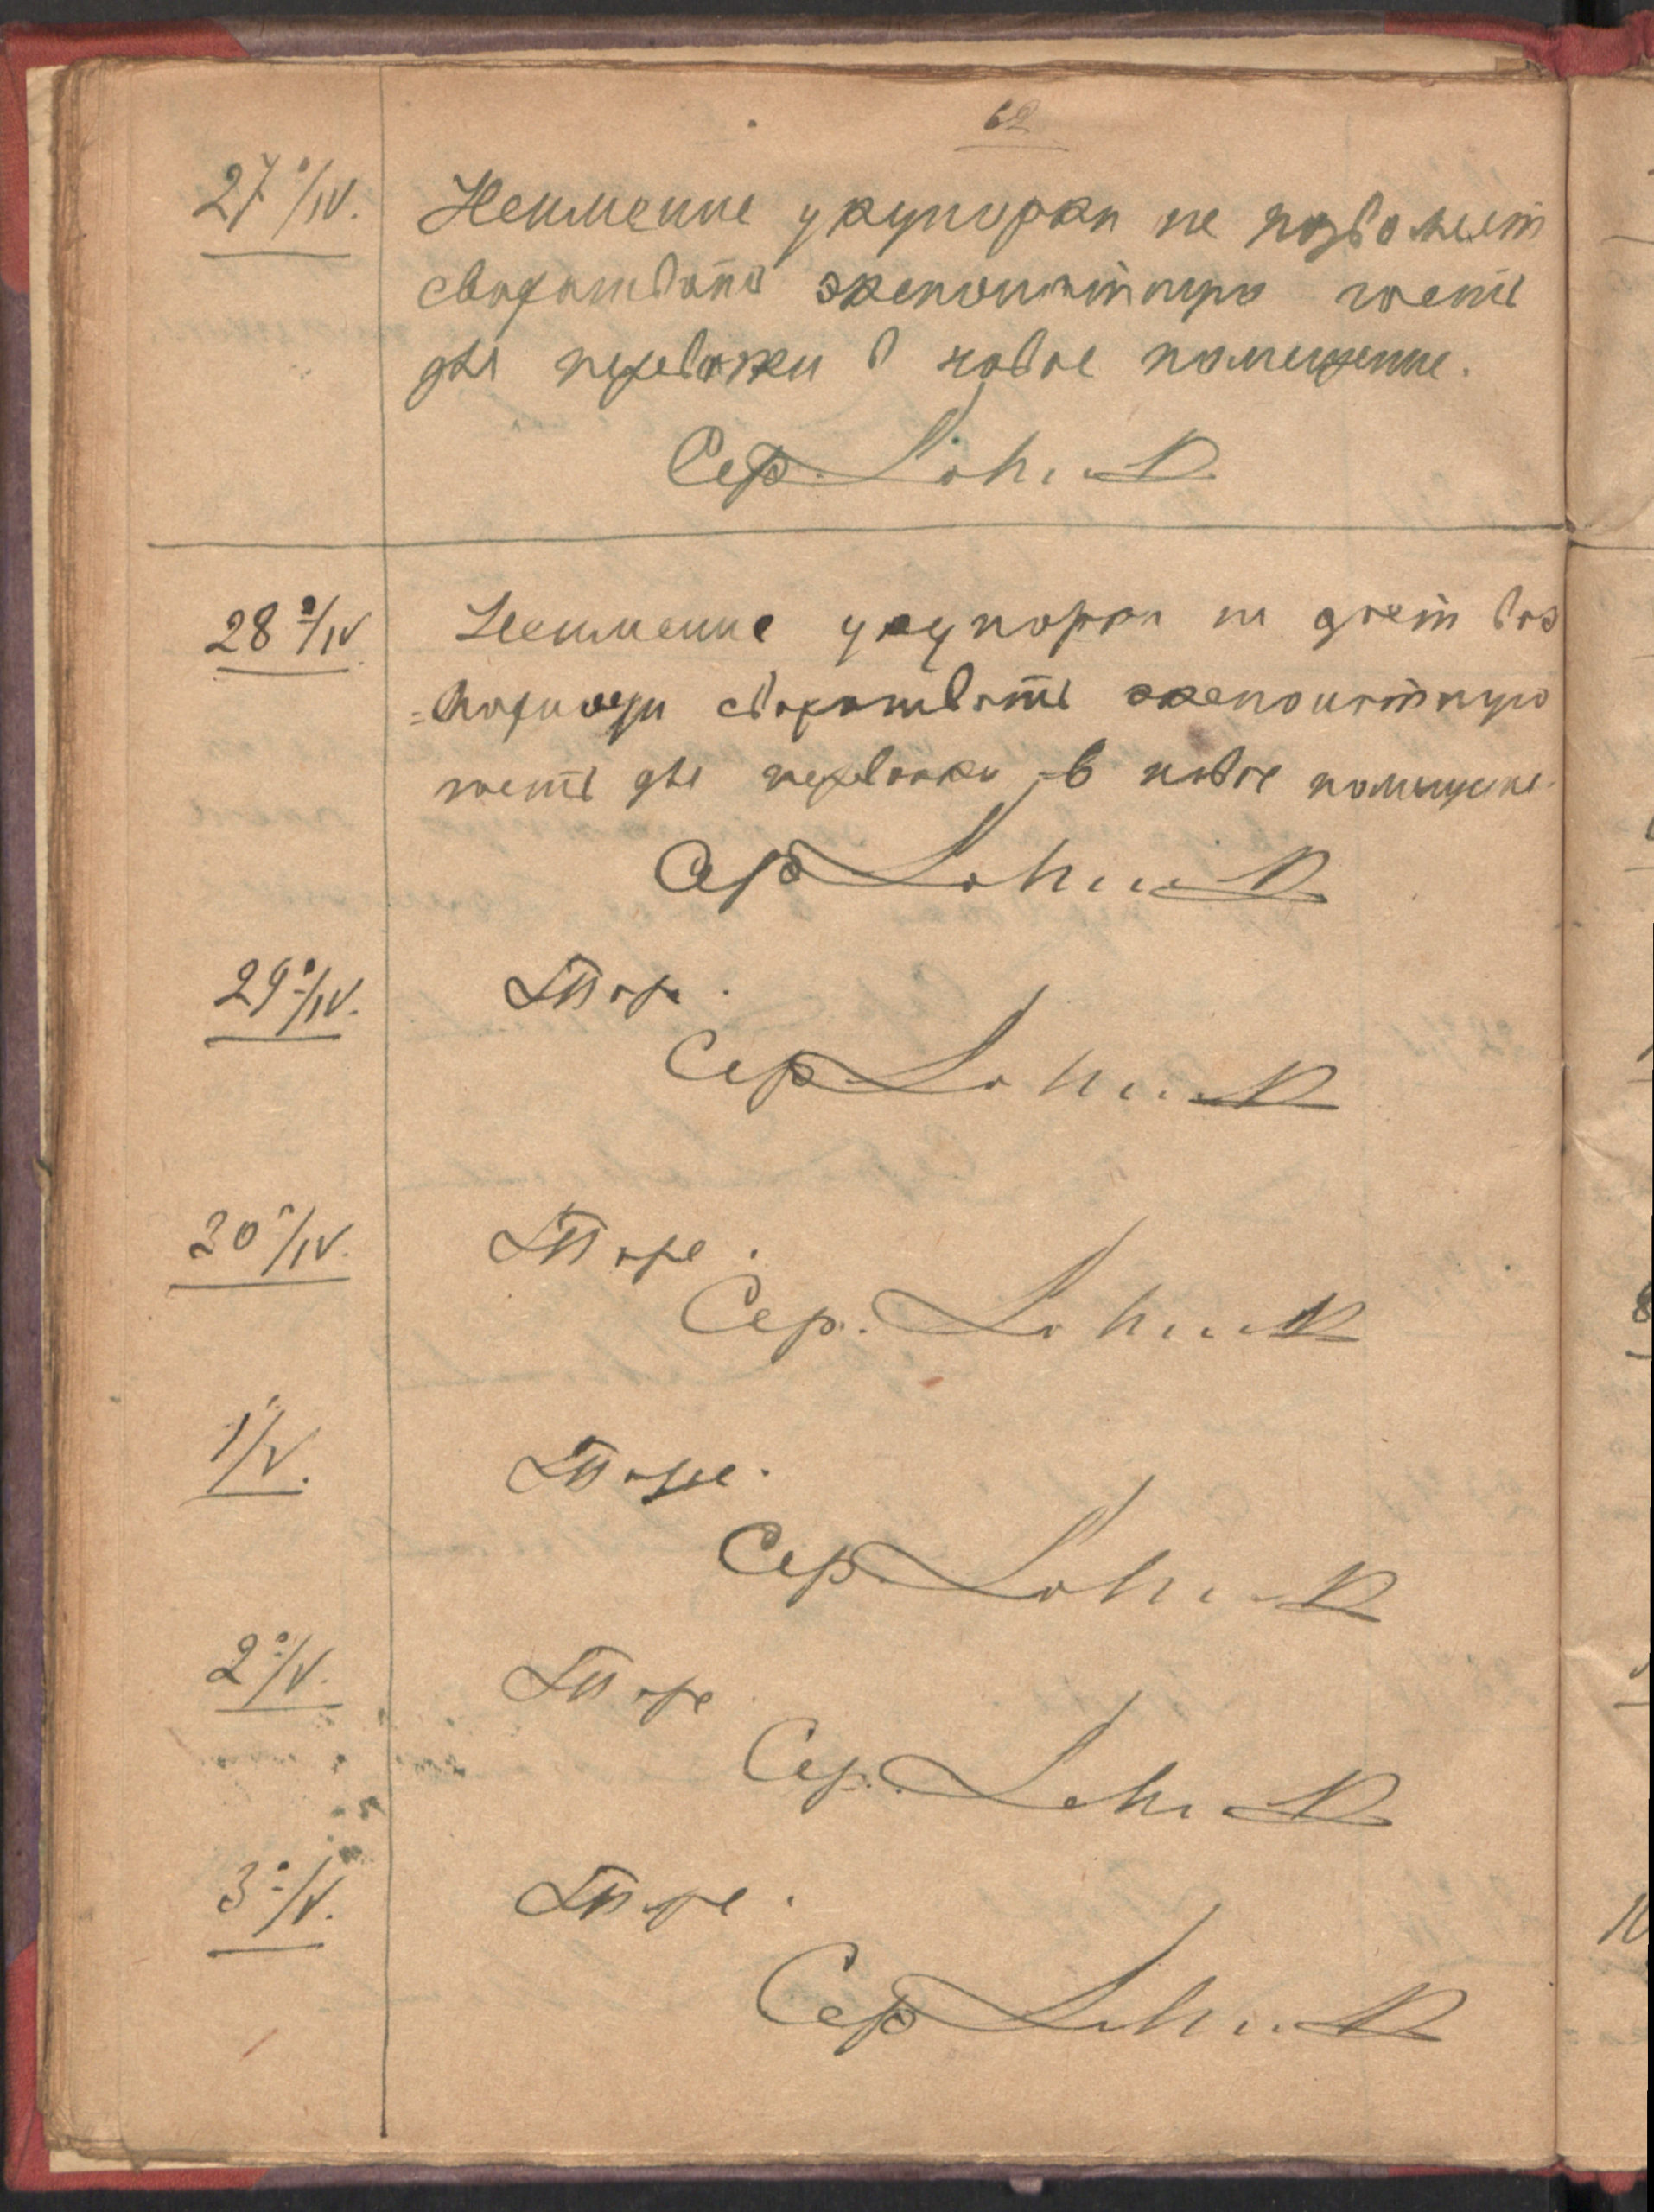 62
27°/IV. Неимение укупорки не позволяет
сворачивать экспонатную часть
для перевозки в новое помещение.
Сер.
28°/IV Неимение укупорки не дает воз
=можности сворачивать экспонатную
часть для перевозки в новое помещение.
Сер
29°/IV. Тоже.
Сер.
30°/IV. Тоже.
Сер.
1°/V. Тоже.
Сер.
2°/V. Тоже
Сер.
3°/V. Тоже.
Сер